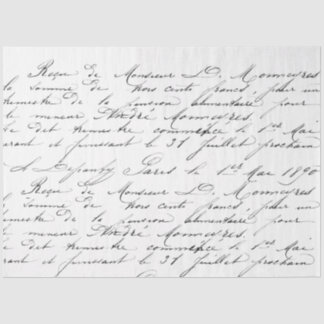 Reçu de Monsieur D. Monnayres
la somme de trois cents francs, pour un
trimestre de la pension alimentaire pour
le mineur André Monnayres.
Le dit trimestre commence le 1er Mai
courant et finissant le 31 juillet prochain
A Paris le 1er Mai 1890
Reçu de Monsieur D. Monnayres
la somme de trois cents francs, pour un
trimestre de la pension alimentaire pour
le mineur André Monnayres.
Le dit trimestre commence le 1er Mai
courant et finissant le 31 juillet prochain